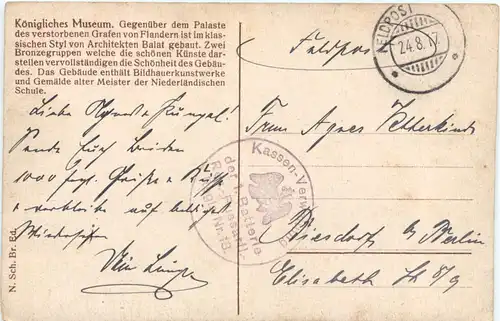 Königliches Museum. Gegenüber dem Palaste
des verstorbenen Grafen von Flandern ist im klas-
sischen Styl von Architekten Balat gebaut. Zwei
Bronzegruppen welche die schönen Künste dar-
stellen vervollständigen die Schönheit des Gebäu-
des. Das Gebäude enthält Bildhauerkunstwerke
und Gemälde alter Meister der Niederländischen
Schule.
Liebe Agnes
Sende Euch beiden
1000 Grüße &
auf baldiges
Wiedersehen
N. Sch. Br. Ed.
FELDPOST
24.8.17
Feldpost
Frau Agnes
Kassen-Verw
der 1. Batterie
Nr. 13.
Biesdorf b/ Berlin
Elisabeth Str 8/9